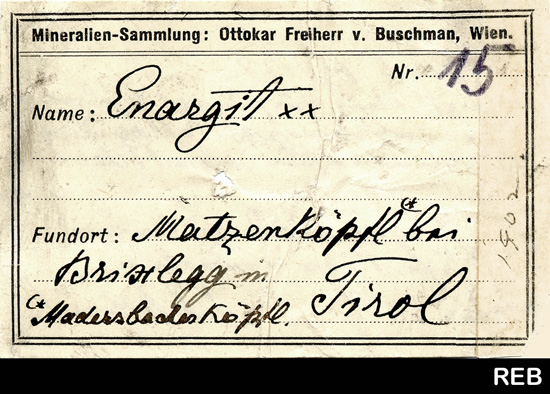 Mineralien-Sammlung: Ottokar Freiherr v. Buschman, Wien.
Nr. 15
Name: Enargit xx
Fundort: Matzenköpfl (* bei
Brixlegg in
Tirol
(* Madersbacherköpfl.
1902
REB